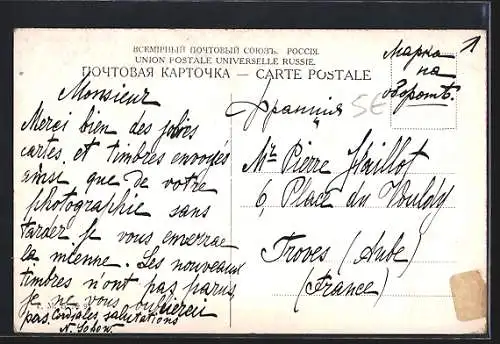 ВСЕМІРНЫЙ ПОЧТОВЫЙ СОЮЗЪ. РОССІЯ.
UNION POSTALE UNIVERSELLE RUSSIE.
ПОЧТОВАЯ КАРТОЧКА — CARTE POSTALE
Марка
на
оборотѣ.
Monsieur
Merci bien des jolies
cartes et timbres envoyés
ainsi que de votre
photographie sans
tarder je vous enverrae
la mienne. Les nouveaux
timbres n'ont pas parus,
je ne vous oublierei
pas. Cordiales salutations
Франція
SE
Mr Pierre
6, Place du
Troyes (Aube)
(France)